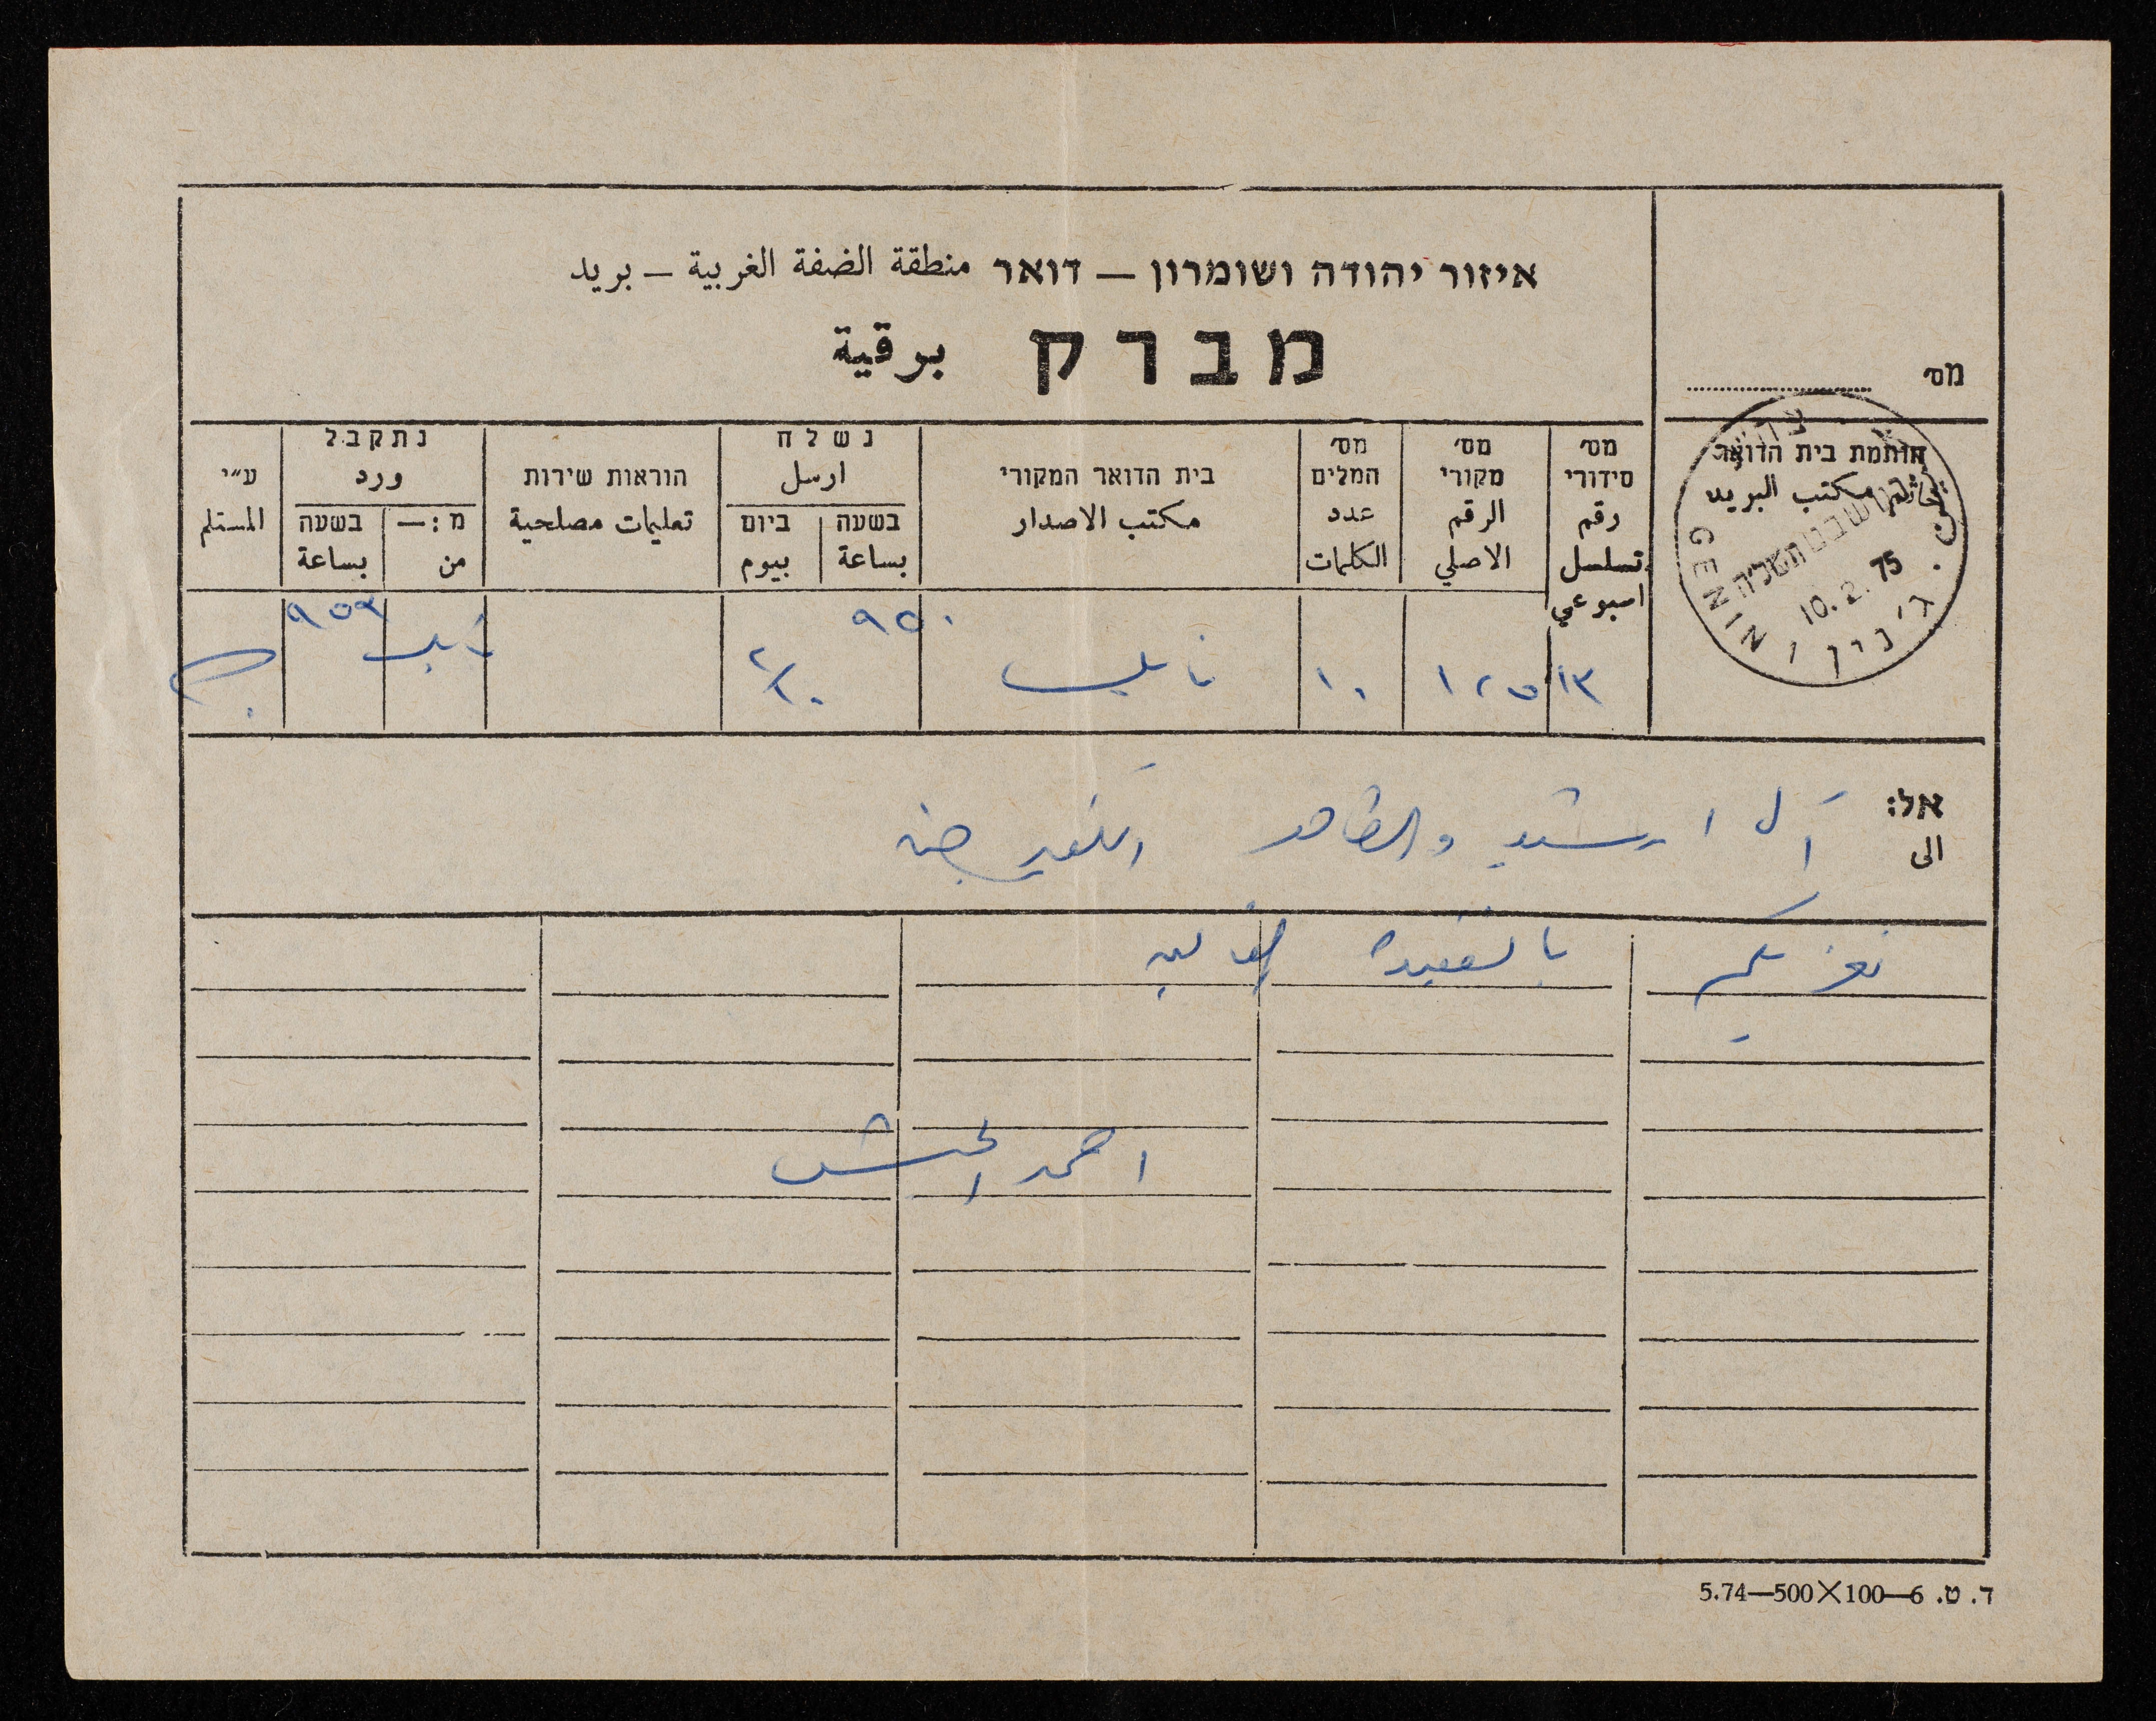 איזור יהודה ושומרון – דואר منطقة الضفة الغربية – بريد
מברק برقية
מס׳
חותמת בית הדואר
خاتم مكتب البريد
GENIN ג׳נין جنين
10.2.75
מס׳ סידורי رقم تسلسل اسبوعي
מס׳ מקורי الرقم الاصلي
מס׳ המלים عدد الكلمات
בית הדואר המקורי مكتب الاصدار
נשלח ارسل
בשעה بساعة
ביום بيوم
הוראות שירות تعليمات مصلحية
נתקבל ورد
מ:— من
בשעה بساعة
ע״י المستلم
١٣ ١٢٥ ١٠ نابلس ٩٥٠ ٩٥٩
אל:
الى
آل ارشيد والظاهر
نعزيكم بالفقيدة الغالية
احمد
ד. ט. 6—100×500—5.74